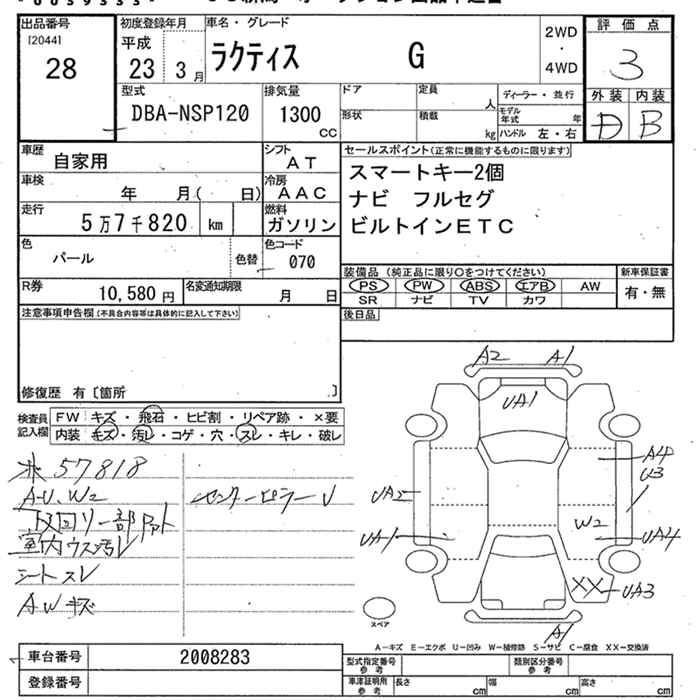 出品番号
[2044]
28
初度登録年月
平成
23 3月
車名・グレード
ラクティス G
2WD
・
4WD
評価点
3
外装 内装
D B
型式
DBA-NSP120
排気量
1300
CC
ドア
定員
人
形状
積載
kg
ディーラー・並行
モデル年式 年
ハンドル 左・右
車歴
自家用
シフト
AT
車検
年 月( 日)
冷房
AAC
走行
5万7千820 km
燃料
ガソリン
色
パール
色替
色コード
070
R券
10,580円
名変通知期限
月 日
セールスポイント(正常に機能するものに限ります)
スマートキー2個
ナビ フルセグ
ビルトインETC
装備品(純正品に限り○をつけてください)
PS PW ABS エアB AW
SR ナビ TV カワ
新車保証書
有・無
後日品
注意事項申告欄(不具合内容等は具体的に記入して下さい)
修復歴 有〔箇所 〕
検査員
記入欄
FW キズ・飛石・ヒビ割・リペア跡・×要
内装 キズ・汚レ・コゲ・穴・スレ・キレ・破レ
米 57818
A・U、W2
下回り一部Pァト
室内ウス汚レ
シートスレ
AWキズ
センターピラーU
A2 A1
UA1
A4
U3
UA2
W2
UA1
UA4
XX
UA3
A1
スペア
A-キズ E-エクボ U-凹み W-補修跡 S-サビ C-腐食 XX-交換済
車台番号
2008283
登録番号
型式指定番号
参考
類別区分番号
参考
車津証明用
参考
長さ cm
幅 cm
高さ cm